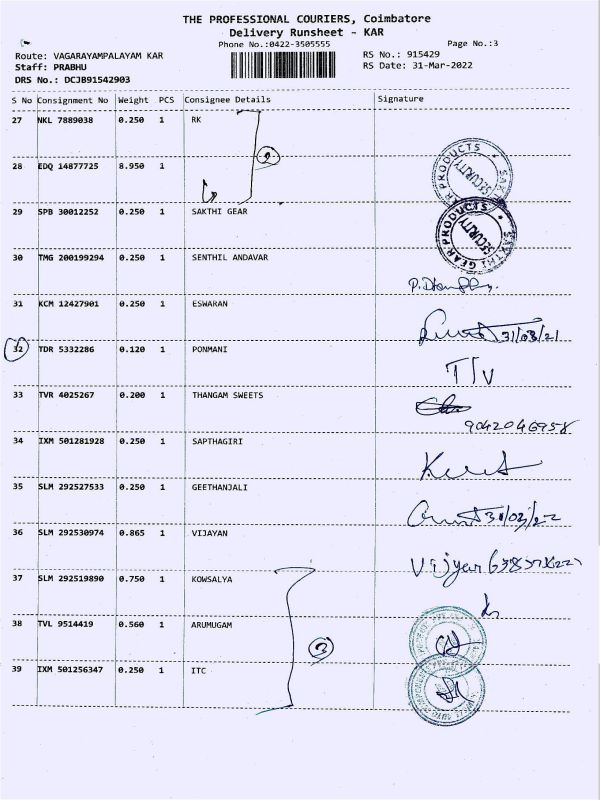 THE PROFESSIONAL COURIERS, Coimbatore
Delivery Runsheet - KAR
Phone No.:0422-3505555
Page No.:3
Route: VAGARAYAMPALAYAM KAR
RS No.: 915429
Staff: PRABHU
RS Date: 31-Mar-2022
DRS No.: DCJB91542903
S No Consignment No Weight PCS Consignee Details Signature
27 NKL 7889038 0.250 1 RK
28 EDQ 14877725 8.950 1
SAKTHI GEAR PRODUCTS
SECURITY
29 SPB 30012252 0.250 1 SAKTHI GEAR
SAKTHI GEAR PRODUCTS
SECURITY
30 TMG 200199294 0.250 1 SENTHIL ANDAVAR
31 KCM 12427901 0.250 1 ESWARAN
31/03/21
32 TDR 5332286 0.120 1 PONMANI
33 TVR 4025267 0.200 1 THANGAM SWEETS
9042046958
34 IXM 501281928 0.250 1 SAPTHAGIRI
35 SLM 292527533 0.250 1 GEETHANJALI
31/03/22
36 SLM 292530974 0.865 1 VIJAYAN
37 SLM 292519890 0.750 1 KOWSALYA
38 TVL 9514419 0.560 1 ARUMUGAM
3
39 IXM 501256347 0.250 1 ITC